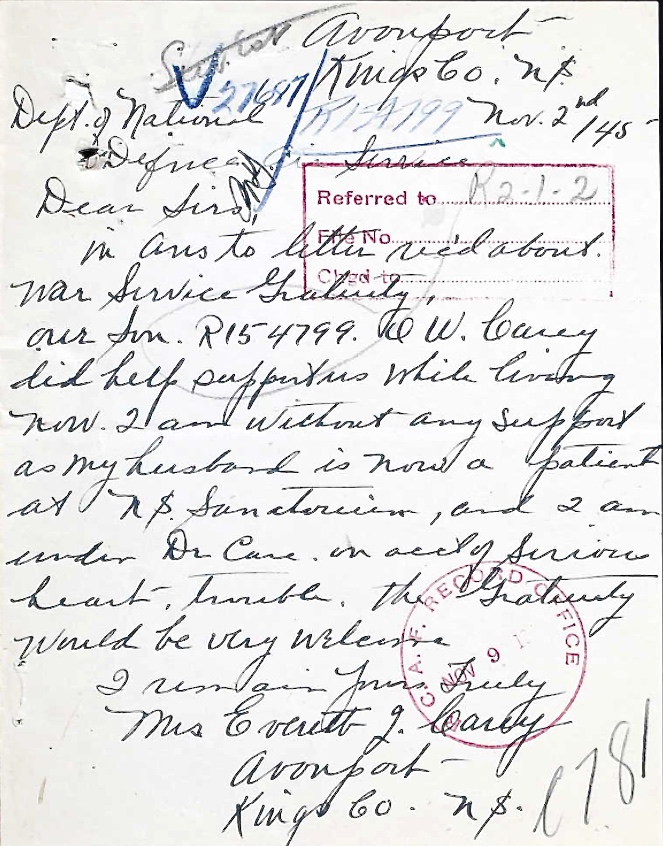 Avonport
Kings Co. N.S.
V 27687
R154799
Nov. 2nd/45
Dept. of National
Defnce Air Service
Dear Sirs,
Referred to K2-1-2
File No.
Chgd to
in Ans to letter rec'd about.
War Service Gratuity,
our Son. R154799. O W. Carey
did help support us while living
now. I am without any support
as my husband is now a patient
at N.S. Sanatorium, and I am
under Dr Care. on acct of Serious
heart. trouble. the Gratuity
would be very welcome
R.C.A.F. RECORD OFFICE
NOV 9
I remain Yours Truly
Mrs Everett J. Carey
Avonport
Kings Co. N.S.